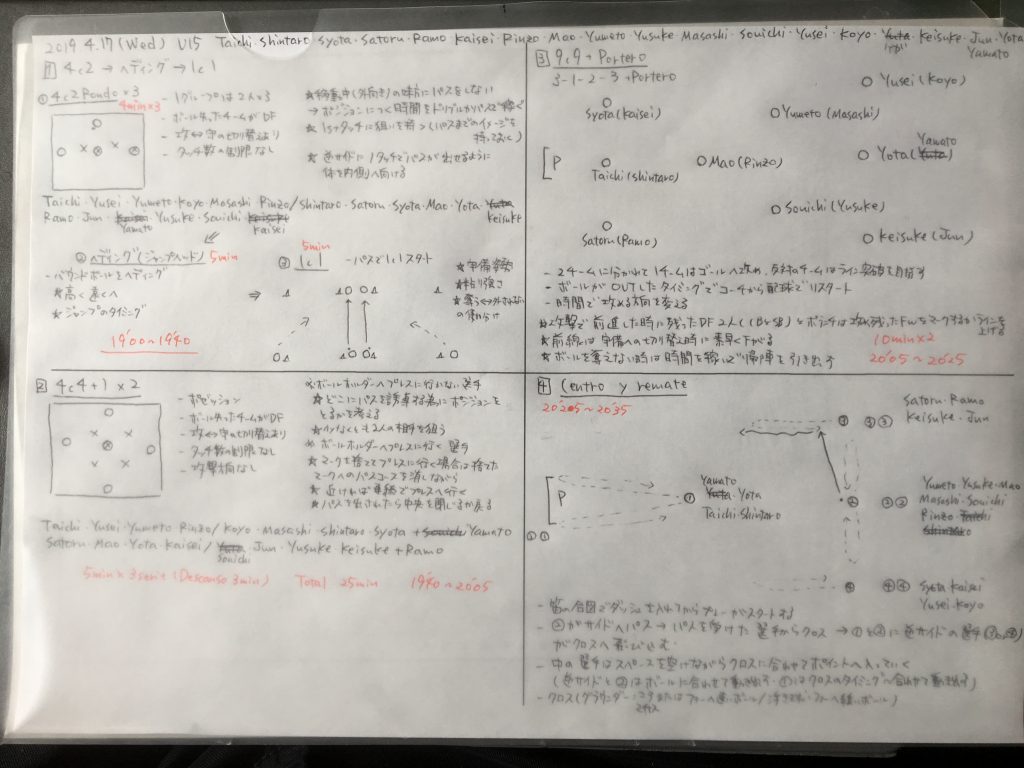 2019 4.17 (Wed) U15 Taichi・Shintaro Syota・Satoru・Ramo Kaisei・Rinzo・Mao・Yumeto・Yusuke・Masashi・Souichi・Yusei・Koyo・Keisuke・Jun・Yota
Yamato
1 4c2 → ヘディング → 1c1
① 4c2 Rondo ×3
4min×3
- 1グループは2人×3
- ボール失ったチームがDF
- 攻⇔守の切り替えあり
- タッチ数の制限なし
★移動中(外向き)の味方にパスをしない
→ポジションにつく時間をドリブルかパスで稼ぐ
★1stタッチに狙いを持つ(パスまでのイメージを
持っておく)
★逆サイドに1タッチでパスが出せるように
体を内側へ向ける
Taichi・Yusei・Yumeto・Koyo・Masashi Rinzo/Shintaro・Satoru・Syota・Mao・Yota・Yuta
Keisuke
Ramo・Jun・Yusuke・Souichi・Keisuke
Yamato Kaisei
② ヘディング(ジャンプヘッド) 5min
★高く遠くへ
★ジャンプのタイミング
19'00~19'40
5min
③ 1c1 - パスで1c1スタート
★準備姿勢
★粘り強さ
2 4c4+1 ×2
- ポゼッション
- ボール失ったチームがDF
- 攻⇔守の切り替えあり
- タッチ数の制限なし
- 攻撃方向なし
※ボールホルダーへプレスに行かない選手
★どこにパスを誘導する為にポジションを
とるかを考える
★少なくとも2人の相手を狙う
※ボールホルダーへプレスに行く選手
★マークを捨ててプレスに行く場合は捨てた
マークへのパスコースを消しながら
★近ければ単独でプレスへ行く
★パスを出されたら中央を閉じるか戻る
Taichi・Yusei・Yumeto Rinzo/Koyo・Masashi・Shintaro・Syota +Souichi Yamato
Satoru・Mao・Yota・Kaisei/Yuta Jun・Yusuke Keisuke +Ramo
Souichi
5min×3serie (Descanso 3min) Total 25min 19'40~20'05
3 9c9 + Portero
3-1-2-3 +Portero
Yusei (Koyo)
Syota (Kaisei)
Yumeto (Masashi)
P
Taichi (Shintaro)
Mao (Rinzo)
Yamato
Yota (Yuta)
Souichi (Yusuke)
Satoru (Ramo)
Keisuke (Jun)
- 2チームに分かれて1チームはゴールへ攻め、反対のチームはライン突破を目指す
- ボールがOUTしたタイミングでコーチから配球でリスタート
- 時間で攻める方向を変える
★攻撃で前進した時に残ったDF2人とボランチは攻め残ったFWをマークするかラインを
上げる
★前線は守備への切り替え時に素早く下がる
★ボールを奪えない時は時間を稼いで帰陣を引き出す
10min×2
20'05~20'25
4 Centro y remate
20'25~20'35
Satoru・Ramo
Keisuke・Jun
P
Yamato
Yuta・Yota
Taichi・Shintaro
Yumeto Yusuke・Mao
Masashi・Souichi
Rinzo Taichi
Shintaro
Syota Kaisei
Yusei・Koyo
- 笛の合図でダッシュを入れてからプレーがスタートする
- ②がサイドへパス → パスを受けた選手からクロス → ①と②に逆サイドの選手
がクロスへ飛び込む
- 中の選手はスペースを空けながらクロスに合わせてポイントへ入っていく
(逆サイドと②はボールに合わせて動き出す・①はクロスのタイミングへ合わせて動き出す)